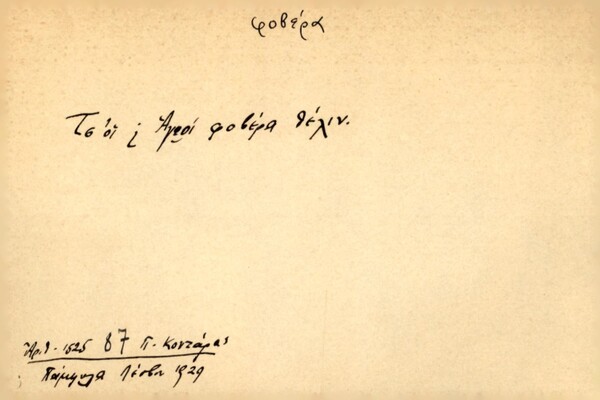 φοβέρα
Τσ' οἱ Ἅγιοι φοβέρα θέλιν.
Ἀριθ. 1525 87 Π. Κοντάρας
Πάμφυλα Λέσβου 1929